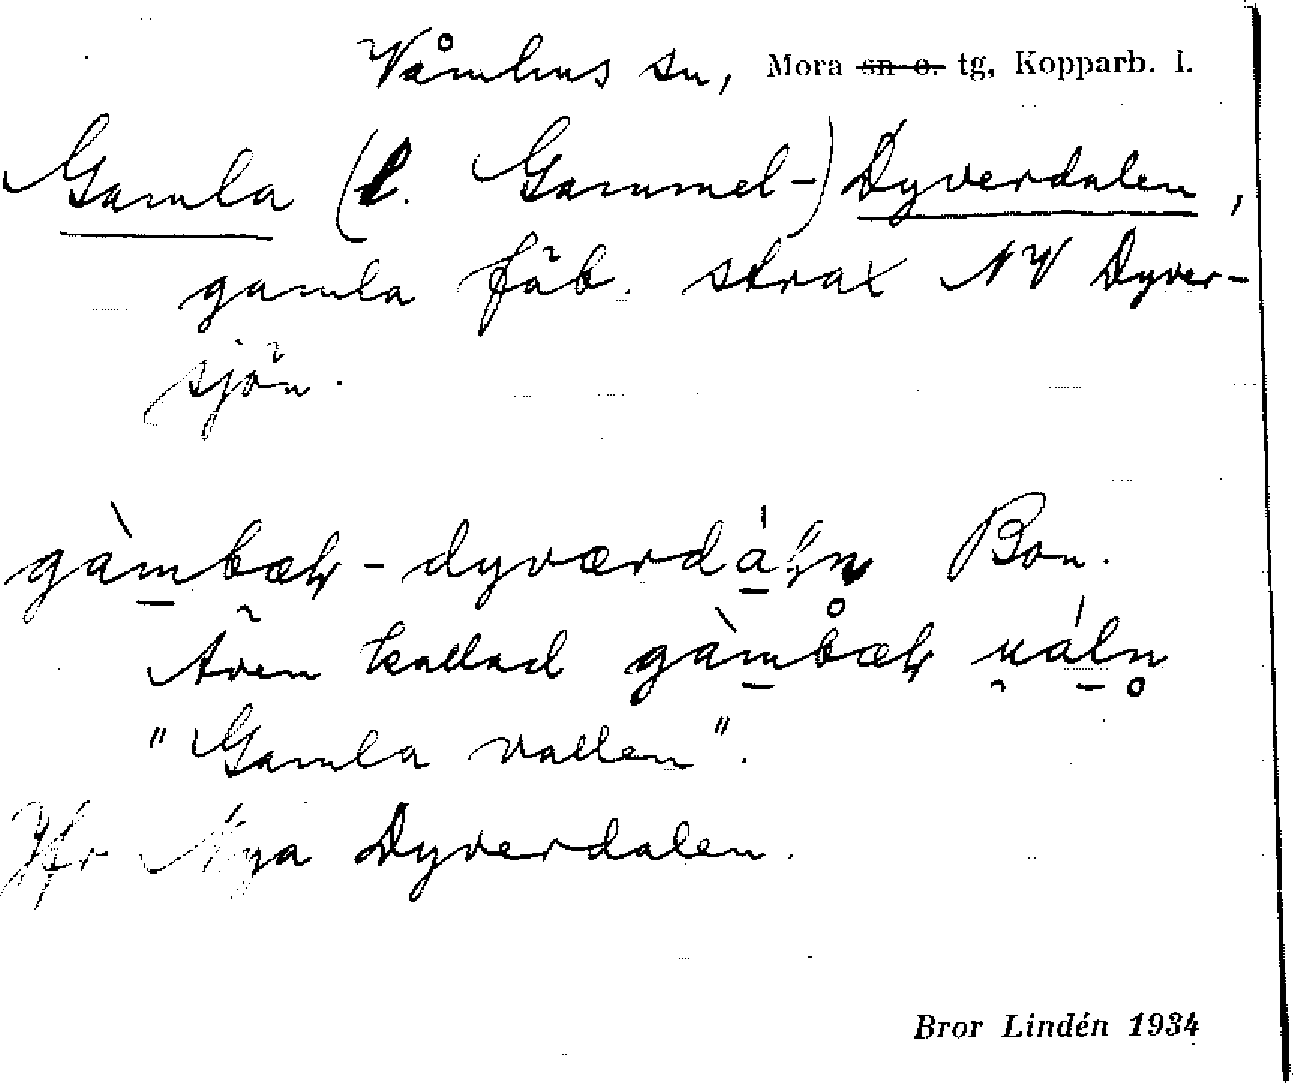 Våmhus sn, Mora sn o. tg, Kopparb. l.
Gamla (l. Gammel-) Dyverdalen,
gamla fäb. strax NV Dyver-
sjön.
gàmbæł-dyværdáłn Bon.
Även kallad gàmbæł uáln
"Gamla vallen".
Jfr Nya Dyverdalen.
Bror Lindén 1934